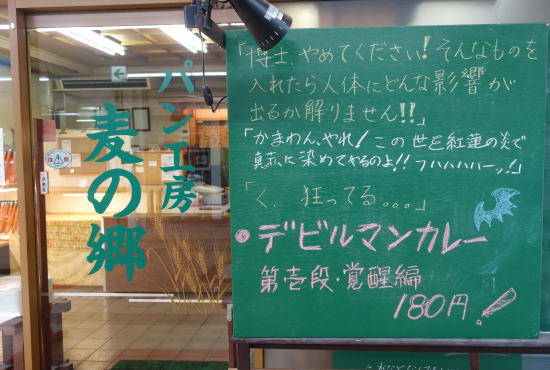 パン工房
麦の郷
「博士、やめてください!そんなものを
入れたら人体にどんな影響が
出るか解りません!!」
「かまわん、やれ!この世を紅蓮の炎で
真赤に染めてやるのよ!!フハハハハーッ!」
「く、狂ってる。。。」
デビルマンカレー
第壱段・覚醒編
180円!